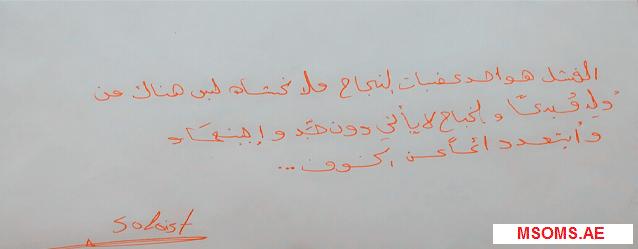 الفشل هو احد عقبات النجاح فلا تخشاه ليس هناك من
وُلِدَ مُبدعًا والنجاح لا يأتي دون جد و إجتهاد
و أبتعد دائماً عن الخوف...
soloist
MSOMS.AE